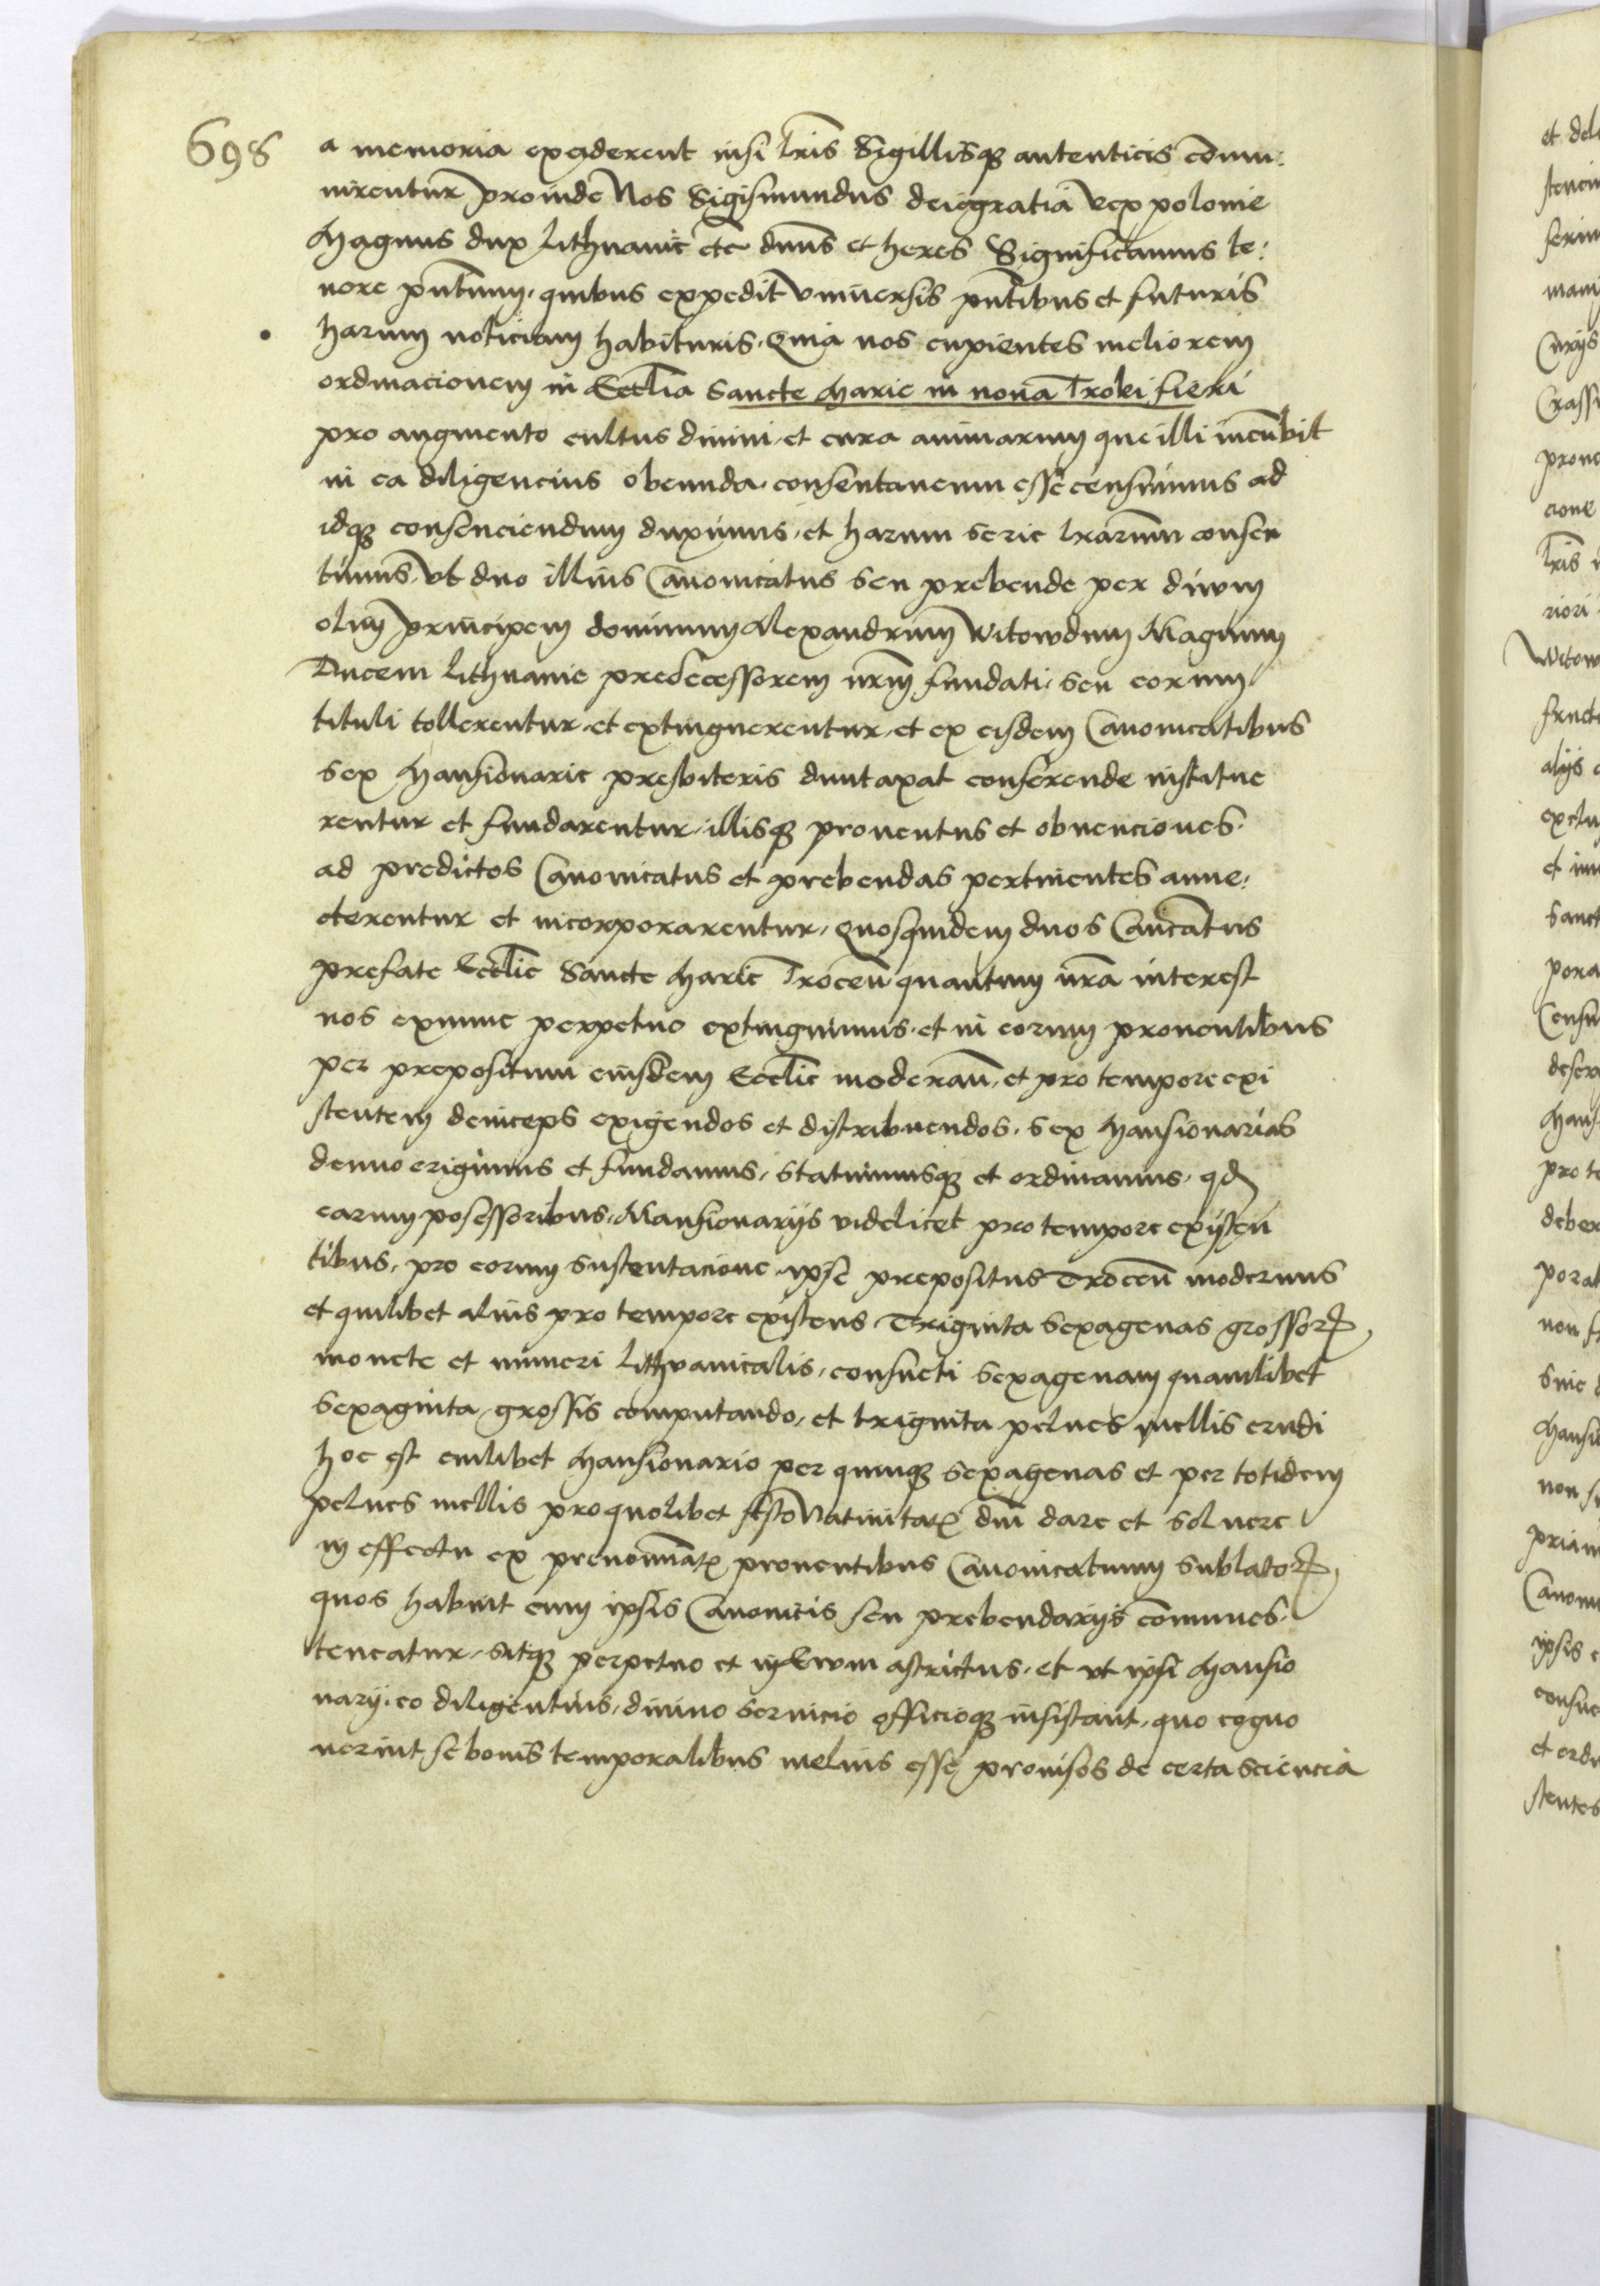 698
a memoria exciderent nisi lris Sigillisq autenticis commu:
nirentur proinde Nos Sigismundus dei gratia Rex polonie
Magnus dux Lithuanie etc dnus et heres Significamus te:
nore pntium, quibus expedit vniuersis pntibus et futuris
harum noticiam habituris. Quia nos cupientes meliorem
ordinacionem in Ecclia Sancte Marie in noua Troki fieri
pro augmento cultus diuini, et cura animarum que illi incumbit
in ea diligencius obeunda, consentaneum esse censuimus ad
idq consenciendum duximus, et harum serie lrarum consen
timus, vt duo illius Canonicatus seu prebende per diuum
olim principem dominum Alexandrum Witowdum Magnum
Ducem Lithuanie predecessorem nrm fundati, seu eorum
tituli tollerentur, et extinguerentur, et ex eisdem Canonicatibus
sex Mansionarie presbiteris duntaxat conferende institue
rentur et fundarentur, illisq prouentus et obuenciones
ad predictos Canonicatus et prebendas pertinentes anne:
cterentur et incorporarentur, Quosquidem duos Cancatus
prefate Ecclie Sancte Marie Trocen quantum nra interest
nos exnunc perpetuo extinguimus, et in eorum prouentibus
per prepositum eiusdem Ecclie modernu, et pro tempore exi
stentem deinceps exigendos et distribuendos, sex Mansionarias
denuo erigimus et fundamus, statuimusq et ordinamus, qd
earum posessoribus, Mansionarijs videlicet pro tempore existen
tibus, pro eorum sustentacione, ipse prepositus Trocen modernus
et quilibet alius pro tempore existens, Triginta sexagenas grossor
monete et numeri Lithuanicalis, consueti sexagenam quamlibet
sexaginta grossis computando, et triginta pelues mellis crudi
hoc est cuilibet Mansionario per quinq sexagenas et per totidem
pelues mellis pro quolibet festo Natiuitatis dni dare et soluere
in effectu ex prenominatis prouentibus Canonicatuum sublator
quos habuit cum ipsis Canonicis seu prebendarijs communes
teneatur, sitq perpetuo et in Euum astrictus, et vt ipsi Mansio
narij, eo diligentius, diuino seruicio officioq insistant, quo cogno
uerint se bonis temporalibus melius esse prouisos de certa sciencia